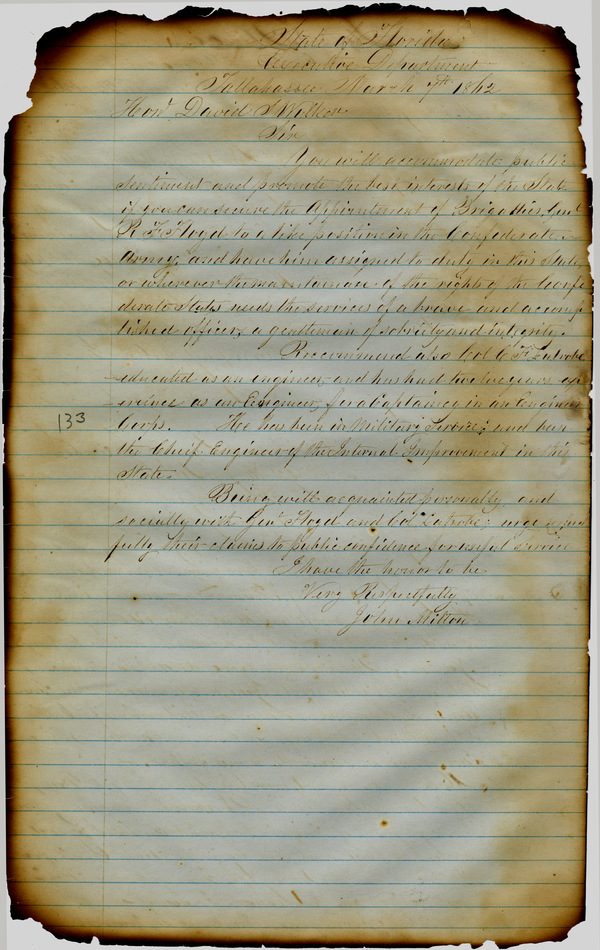 State of Florida
Executive Department
Tallahassee March 7th 1862
Hon. David S Walker
Sir
You will accommodate public
sentiment and promote the best interests of the State
if you can secure the Appointment of Brigadier Genl
R. F. Floyd to a like position in the Confederate
Army, and have him assigned to duty in this State,
or wherever the maintenance of the rights of the Confe
derate States needs the services of a brave and accomp
lished officer, a gentleman of sobriety and integrity.
Reccommend also Col C. F. Latrobe
educated as an engineer, and has had twelve years ex
perience as an Engineer, for a Captaincy in an Engineer
Corps. He has been in Military Service; and has
the Chief Engineer of the Internal Improvement in this
State.
133
Being well acquainted personally and
socially with Genl Floyd and Col Latrobe; urge
fully their claims to public confidence for useful service
I have the honor to be
Very Respectfully
John Milton